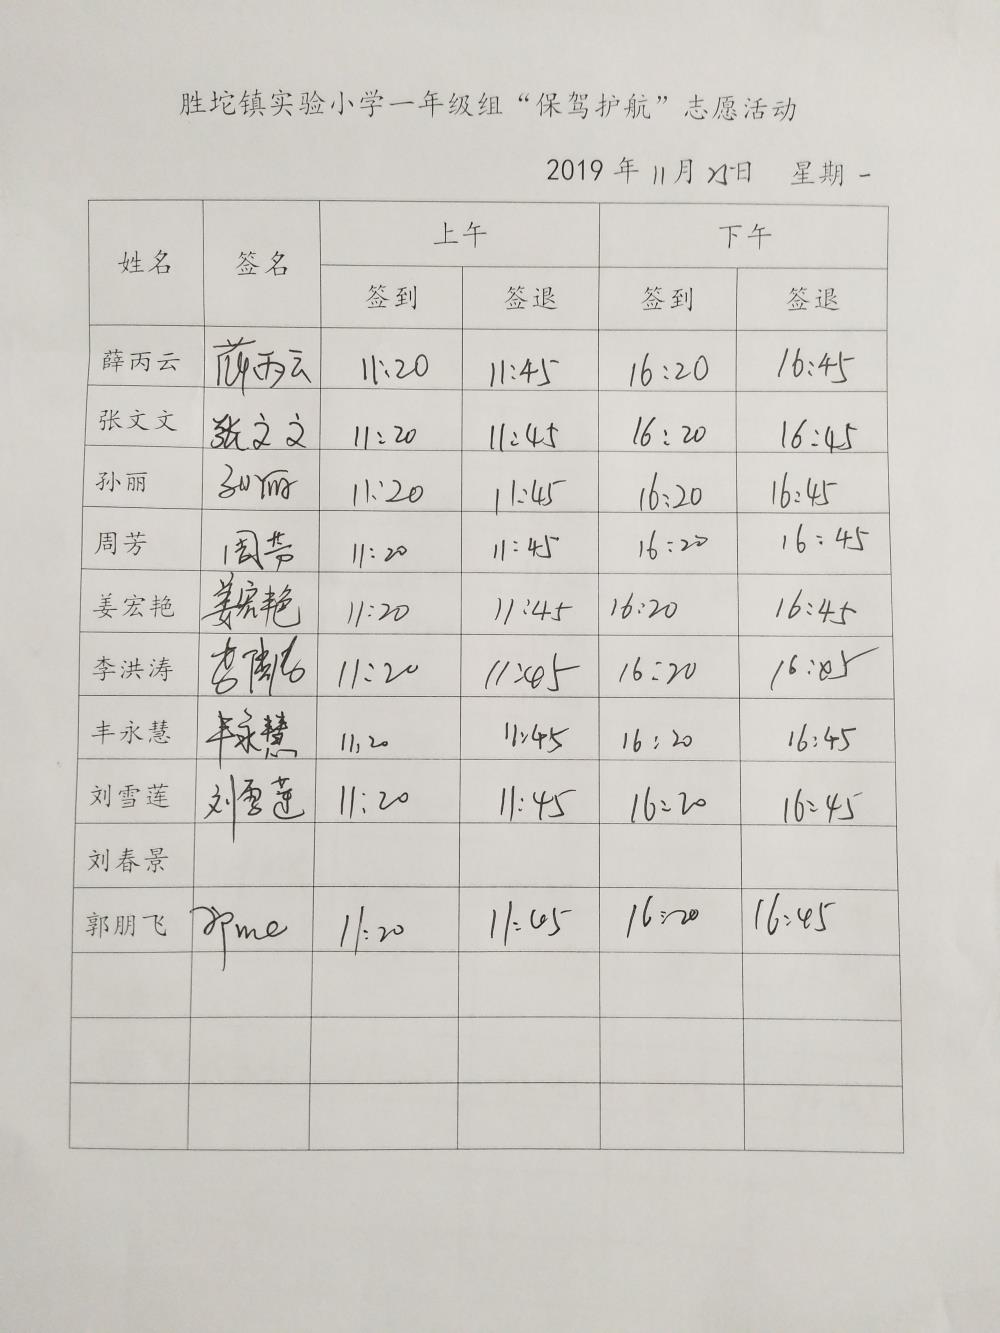 胜坨镇实验小学一年级组“保驾护航”志愿活动
2019 年 11 月 25 日 星期一
姓名 签名 上午 下午
签到 签退 签到 签退
薛丙云 薛丙云 11:20 11:45 16:20 16:45
张文文 张文文 11:20 11:45 16:20 16:45
孙丽 孙丽 11:20 11:45 16:20 16:45
周芳 周芳 11:20 11:45 16:20 16:45
姜宏艳 姜宏艳 11:20 11:45 16:20 16:45
李洪涛 李洪涛 11:20 11:45 16:20 16:45
丰永慧 丰永慧 11:20 11:45 16:20 16:45
刘雪莲 刘雪莲 11:20 11:45 16:20 16:45
刘春景
郭朋飞 11:20 11:45 16:20 16:45